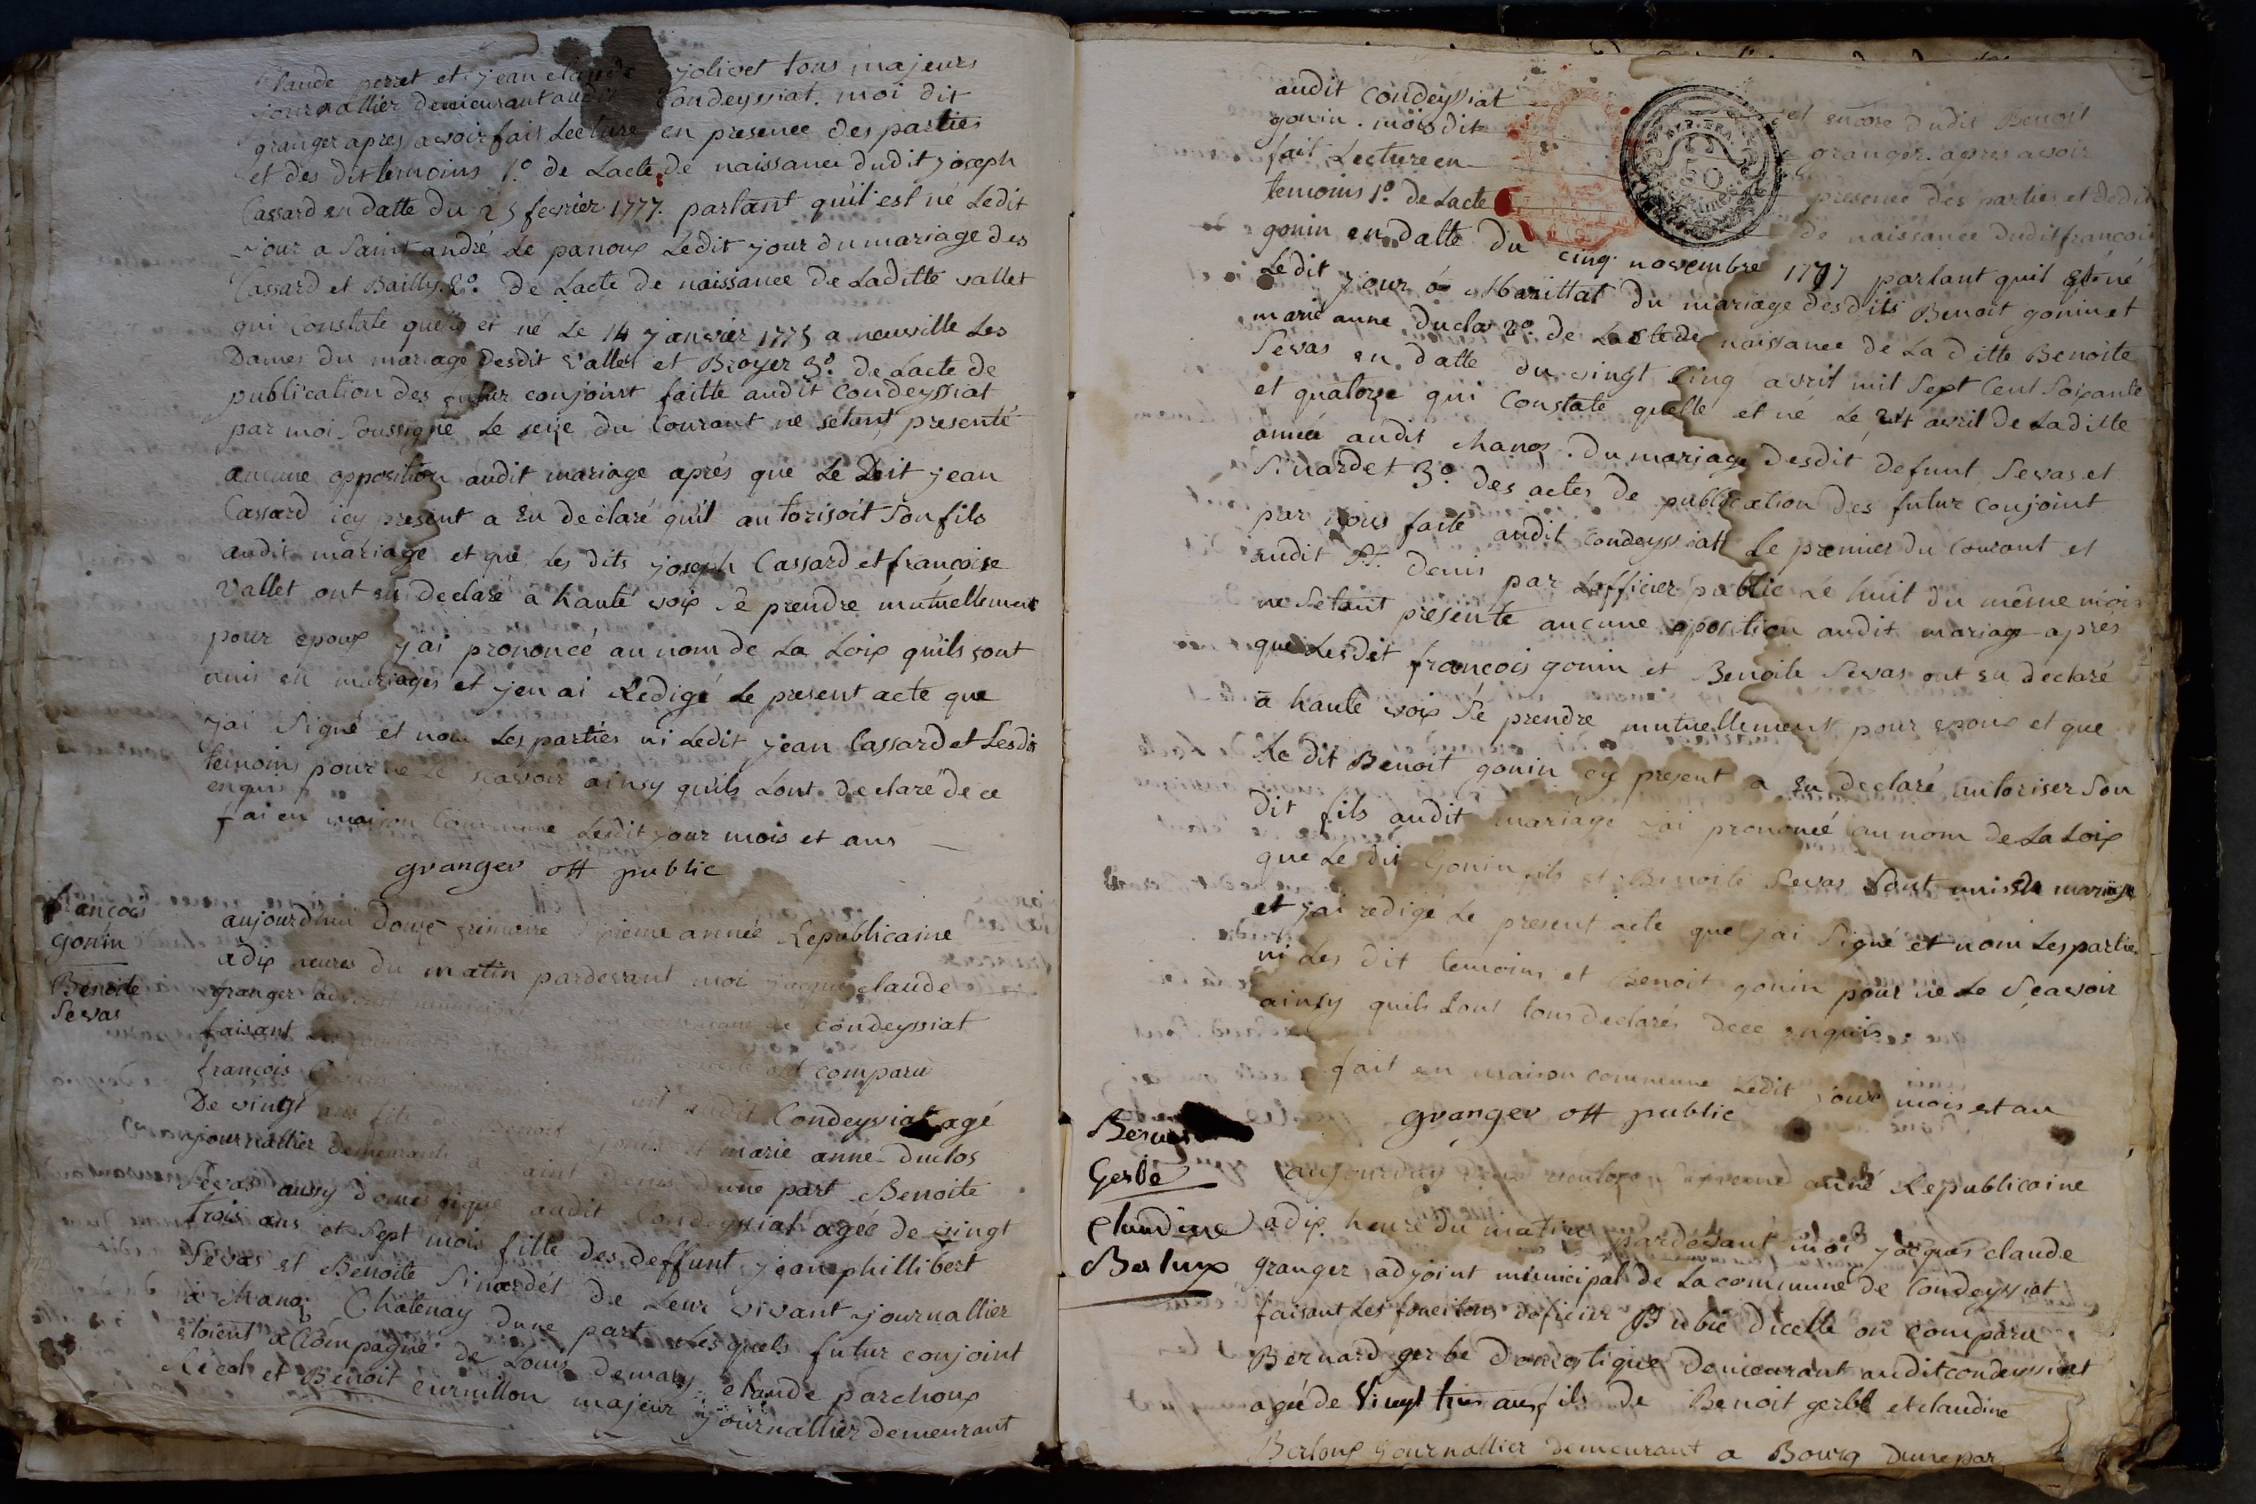 Claude perret et jean claude jolivet tous majeurs
journallier demeurant audit Condeyssiat. moi dit
granger apres avoir fais Lecture en presence des parties
et des dit temoins 1.º de Lacte de naissance dudit joseph
Cassard en datte du 25 fevrier 1777. parlant qu'il est né Ledit
jour a Saint andré Le panoux Ledit jour du mariage des
Cassard et Bailly. 2º. de Lacte de naissance de Laditte vallet
qui Constate quelle et né Le 14 janvier 1775 a neuville Les
Dames du mariage desdit Vallet et Broyer 3º. de Lacte de
publication des futur conjoint faitte audit Condeyssiat
par moi Soussigné Le seize du Courant ne setant presenté
aucune opposition audit mariage aprés que Le Dit jean
Cassard icy present a eu declaré qu'il autorisoit Son fils
audit mariage et que Les dits joseph Cassard et françoise
Vallet ont eu declaré a haute voix Se prendre mutuellement
pour epoux j'ai prononcé au nom de La Loix quils sont
unis en mariages et jen ai Redigé Le present acte que
j'ai Signé et non Les parties ni Ledit jean Cassard et Lesdis
temoins pour ne Le scavoir ainsy quils Lont declaré de ce
enquis
fai en maison Commune Ledit jour mois et ans
granger off public
francois
Gonin
Benoite
Sevas
aujourdhui douze frimaire année Republicaine
a dix heures du matin pardevant moi jacque claude
granger adjoint municipal de Condeyssiat
faisant Les fonctions comparu
francois Gonin audit Condeyssiat agé
De vingt ans fils de Benoit Gonin et marie anne Duclos
journallier demeurants a Saint Denis dune part Benoite
Sevas aussy domestique audit Condeyssiat agée de vingt
trois ans et Sept mois fille des deffunt jean phillibert
Sevas et Benoite Sinardet de Leur vivant journallier
a Manoz Châtenay dune part Lesquels futur conjoint
etoient aCompagné de Louis demary claude parchoux
Récol et Benoit Curnillon majeur journallier demeurant
audit Condeyssiat et encore dudit Benoit
gonin. mois dit granger. apres avoir
fait Lecture en presence des parties et dedit
temoins 1º. de Lacte de naissance dudit francois
gonin en datte du cinq novembre 1777 parlant quil est né
Ledit jour a Marittat du mariage desdits Benoit gonin et
marie anne duclos 2º. de Lacte de naissance de La ditte Benoite
Sevas en datte du vingt Cinq avril mil Sept Cent Soixante
et quatorze qui Constate quelle et né Le 24 avril de Laditte
année audit Manoz. du mariage desdit defunt Sevas et
Sinardet 3º. des actes de publication des futur Conjoint
par nous faite audit Condeyssiatt Le premier du Courant et
audit St. Denis par Lofficier public Le huit du même mois
ne Setant presenté aucune oposition audit mariage apres
que Lesdit francois gonin et Benoite Sevas ont eu declaré
a haute voix Se prendre mutuellement pour epoux et que
Le dit Benoit gonin cy present a eu declaré autoriser Son
dit fils audit mariage j'ai prononcé au nom de La Loix
que Le dit gonin fils et Benoite Sevas Sont unis en mariage
et j'ai redigé Le present acte que j'ai Signé et nom Les partie
ni Les dit temoins et Benoit gonin pour ne Le Scavoir
ainsy quils Lont tous declarés dece enquis
fait en maison commune Ledit jour mois et an
granger off public
Bernard
Gerbe
Claudine
Berlux
aujourduy anné Republicaine
a dix heure du matin pardevant moi jacques claude
granger adjoint municipal de La commune de Condeyssiat
faisant Les fonctions doficier Public dicelle on comparu
Bernard gerbe Domestique Demeurant audit condeyssiat
agée de Vingt trois ans fils de Benoit gerbe et claudine
Berloux journallier demeurant a Bourg dune par